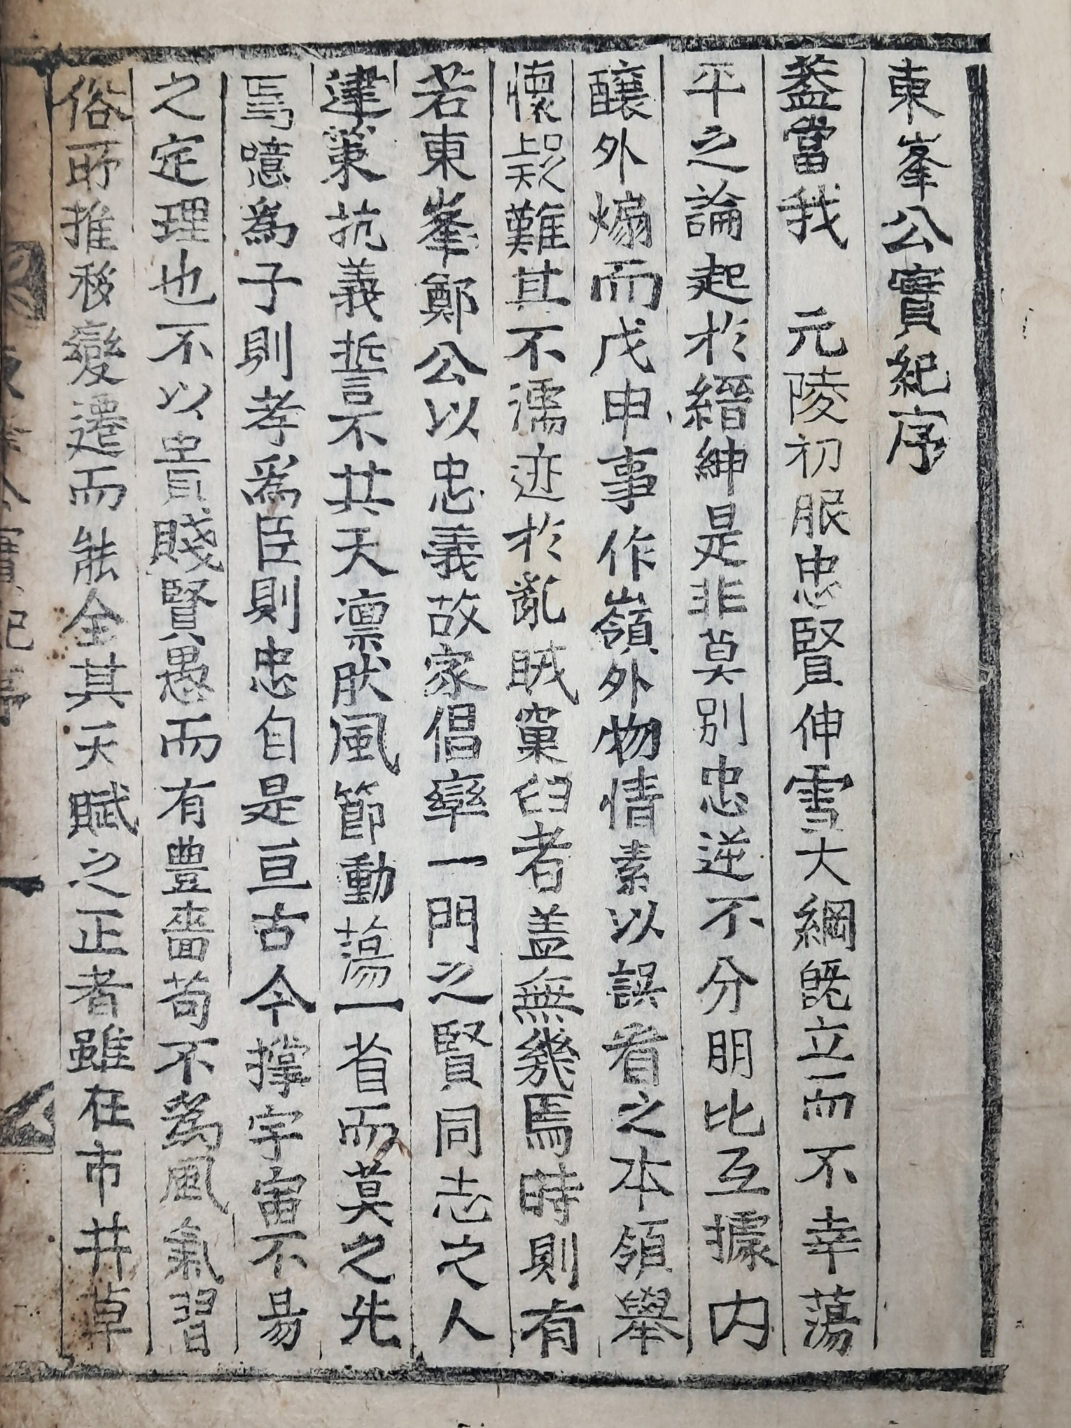 東峯公實紀序
蓋當我 元陵初服忠賢伸雪大綱旣立而不幸蕩
平之論起於縉紳是非莫別忠逆不分朋比互據内
釀外煽而戊申事作嶺外物情素以誤着之本領舉
懷疑難其不濡迹於亂賊窠臼者盖無幾焉時則有
若東峯鄭公以忠義故家倡率一門之賢同志之人
建策抗義誓不共天凛然風節動蕩一省而莫之先
焉噫爲子則孝爲臣則忠自是亘古今撑宇宙不易
之定理也不以貴賤賢愚而有豊嗇苟不爲風氣習
俗所推移變遷而能全其天賦之正者雖在市井草